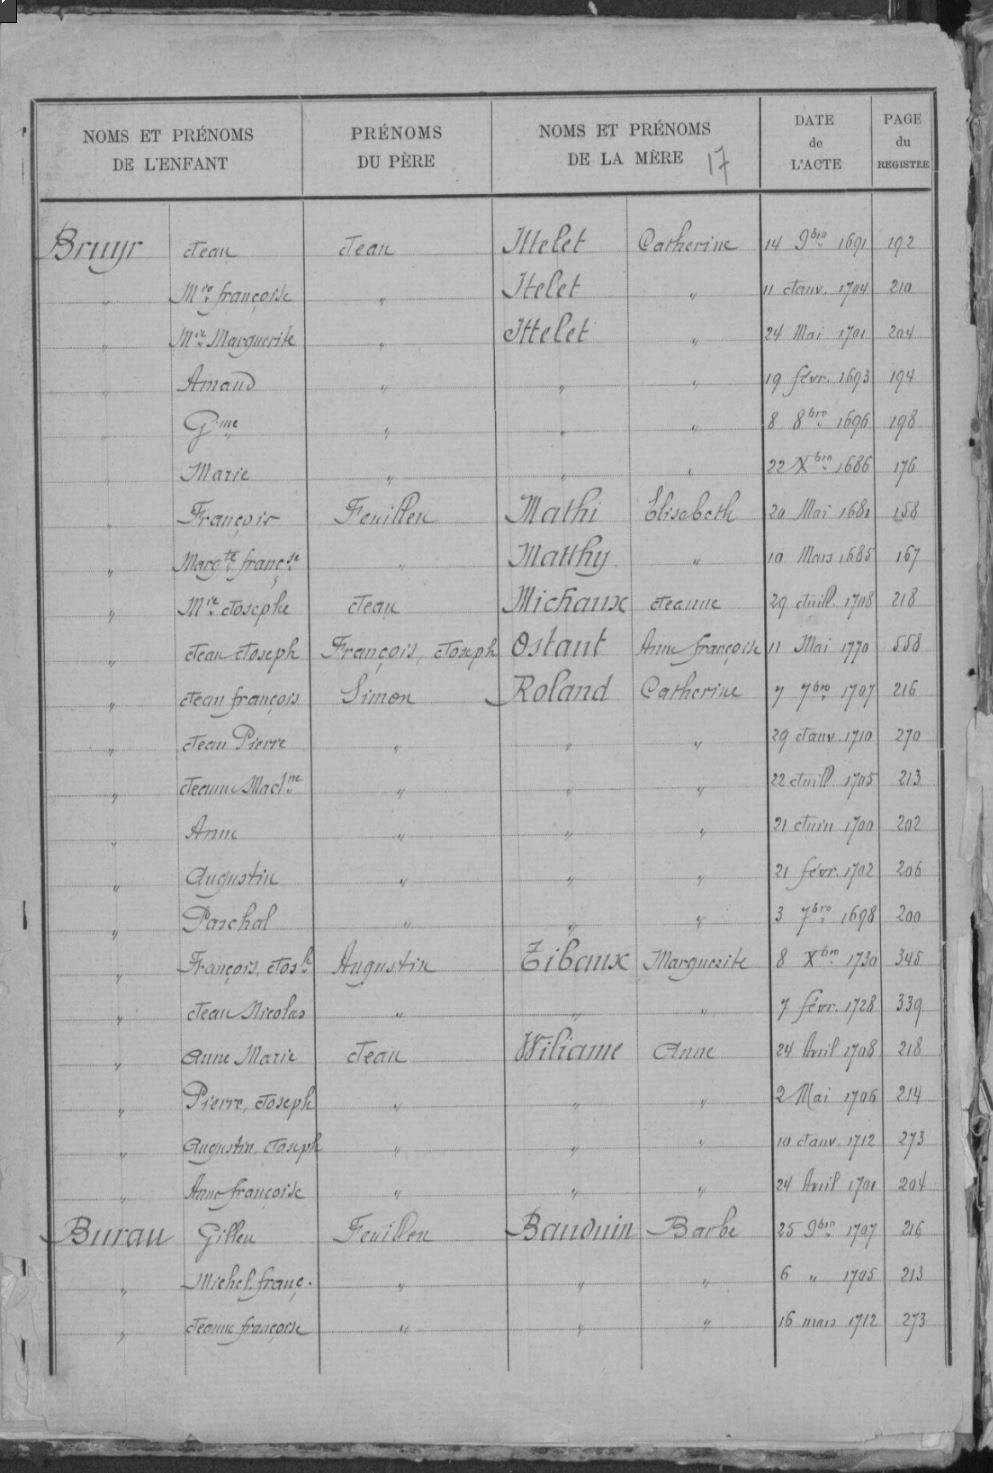 NOMS ET PRÉNOMS DE L'ENFANT | PRÉNOMS DU PÈRE | NOMS ET PRÉNOMS DE LA MÈRE 17 | DATE de L'ACTE | PAGE du REGISTRE
Bruyr Jean Jean Ittelet Catherine 14 9bre 1691 192
" Mre françoise " Itelet " 11 Janv. 1704 210
" Mre Marguerite " Ittelet " 24 Mai 1701 204
" Amand " " " 19 févr. 1693 194
" Gme " " " 8 8bre 1696 198
" Marie " " " 22 Xbre 1686 176
" François Feuillen Mathi Elisabeth 20 Mai 1681 158
" Margte françse " Matthy " 10 Mars 1685 167
" Mre Josephe Jean Michaux Jeanne 29 Juill. 1708 218
" Jean Joseph François, Joseph Ostant Anne françoise 11 Mai 1770 558
" Jean françois Simon Roland Catherine 7 7bre 1707 216
" Jean Pierre " " " 29 Janv. 1710 270
" Jeanne Madne " " " 22 Juill. 1705 213
" Anne " " " 21 Juin 1700 202
" Augustin " " " 21 févr. 1702 206
" Paschal " " " 3 7bre 1698 200
" François, Josh Augustin Tibaux Marguerite 8 Xbre 1730 345
" Jean Nicolas " " " 7 févr. 1728 339
" Anne Marie Jean Wiliame Anne 24 Avril 1708 218
" Pierre, Joseph " " " 2 Mai 1706 214
" Augustin, Joseph " " " 10 Janv. 1712 273
" Anne françoise " " " 24 Avril 1701 204
Burau Gilleu Feuillen Bauduin Barbe 25 9bre 1707 216
" Michel. franç. " " " 6 " 1705 213
" Jeanne françoise " " " 16 mars 1712 273